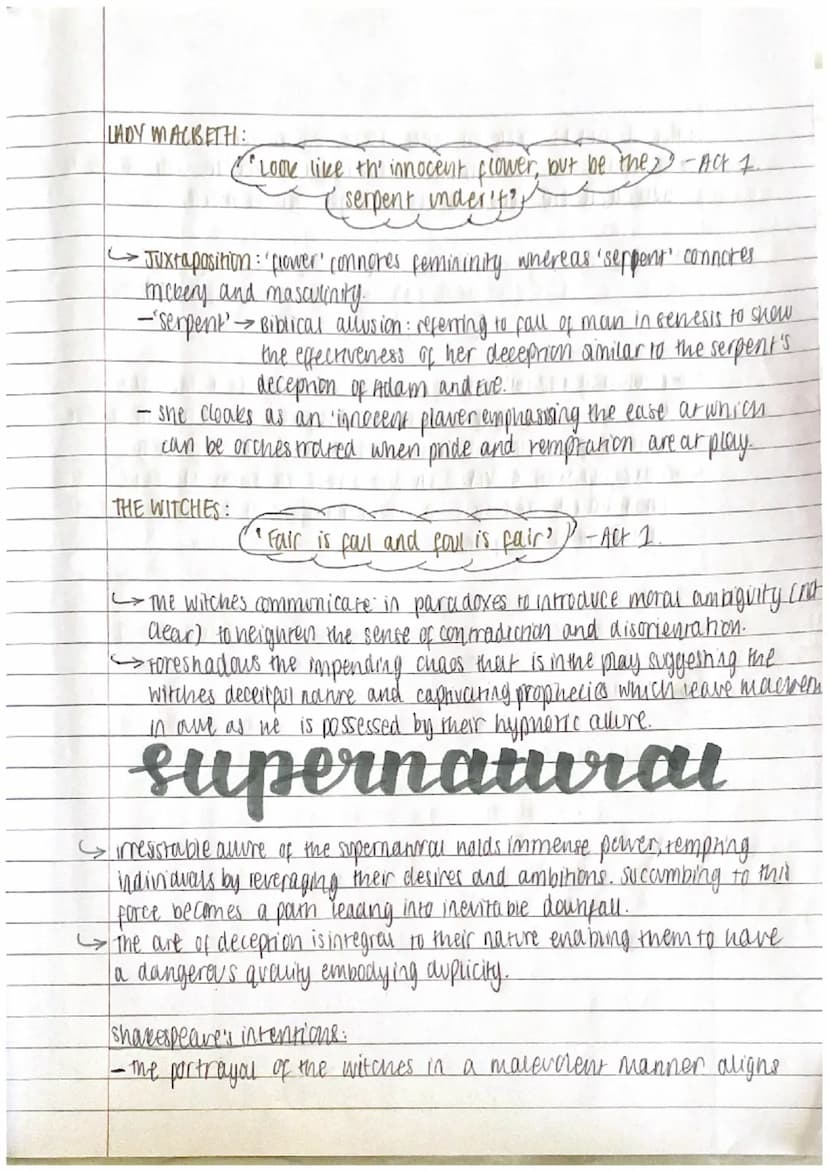 LADY MACBETH:
'Look like th' innocent flower, but be the - Act 1.
serpent under't'
↳ Juxtaposition: 'flower' connotes femininity whereas 'serpent' connotes
and masculinity.
- 'serpent' → Biblical allusion: referring to fall of man in Genesis to show
the effectiveness of her deception similar to the serpent's
deception of Adam and Eve.
- she cloaks as an 'innocent emphasising the ease at which
can be orchestrated when pride and temptation are at play.
THE WITCHES:
'Fair is foul and foul is fair' - Act 1.
↳ The witches communicate in paradoxes to introduce moral ambiguity (not
clear) to heighten the sense of contradiction and disorientation.
↳ Foreshadows the impending chaos that is in the play suggesting the
witches deceitful nature and captivating prophecies which leave Macbeth
in awe as he is possessed by their hypnotic allure.
supernatural
↳ irresistable allure of the supernatural holds immense power, tempting
individuals by leveraging their desires and ambitions. Succumbing to this
force becomes a path leading into inevitable downfall.
↳ The art of deception is integral to their nature enabling them to have
a dangerous quality embodying duplicity.
Shakespeare's intentions:
- The portrayal of the witches in a malevolent manner aligns